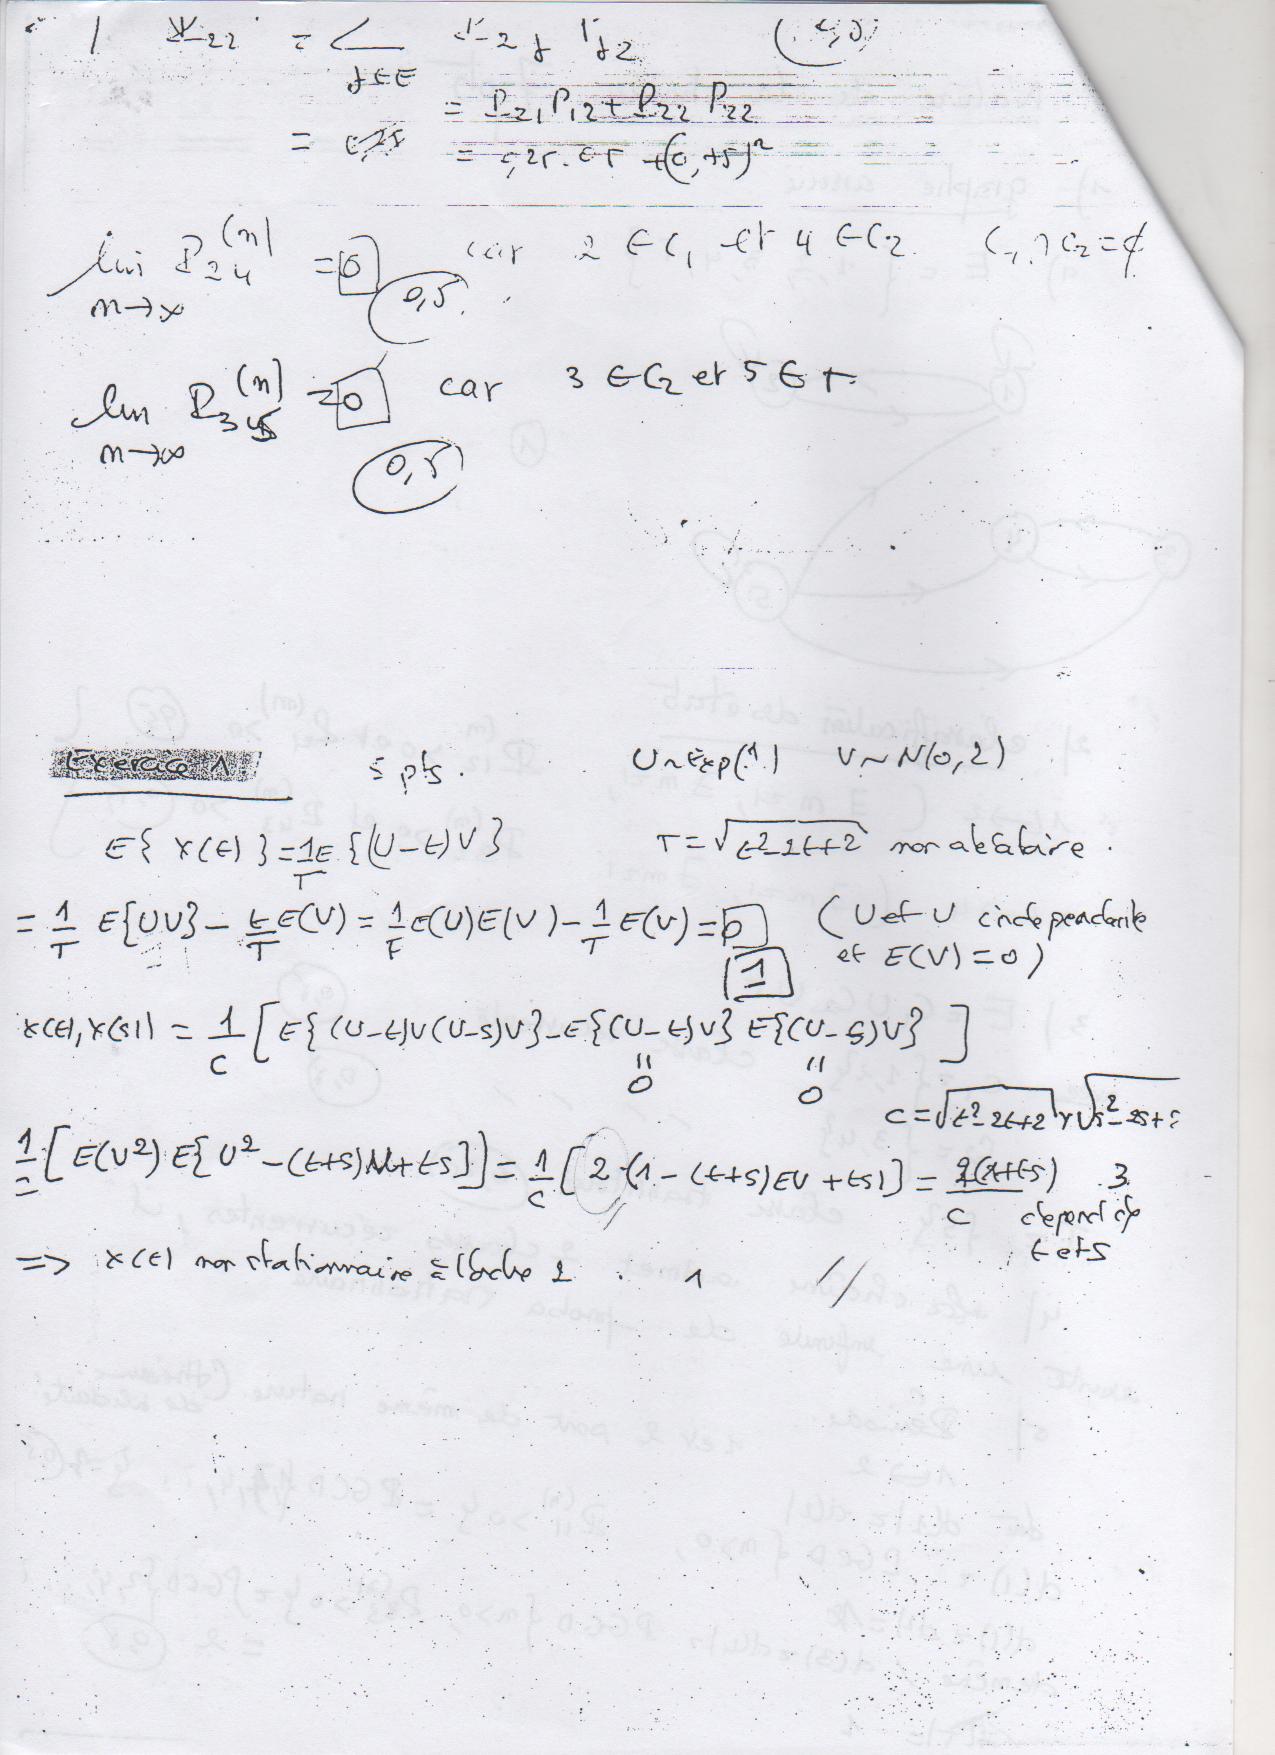 P₂₂ = Σ P₂ⱼ Pⱼ₂
j∈E
= P₂₁P₁₂ + P₂₂ P₂₂
= (0,75)²
lim P₂₄⁽ⁿ⁾ = 0 car 2 ∈ C₁ et 4 ∈ C₂ C₁∩C₂=∅
n→∞
0,5
lim P₃₅⁽ⁿ⁾ = 0 car 3 ∈ C₂ et 5 ∈ T
n→∞
0,5
Exercice 1: 5 pts. U~Exp(1) V~N(0,2)
E{X(t)} = 1/T E{(U-t)V} T = √(t²-2t+2) non aléatoire.
= 1/T E{UV} - t/T E(V) = 1/T E(U)E(V) - 1/T E(V) = 0 (U et U independante
1 et E(V)=0)
X(t),X(s)) = 1/C [E{(U-t)V(U-s)V} - E{(U-t)V} E{(U-s)V}]
= 0 = 0
C = √(t²-2t+2) × √(s²-2s+2
1/C [E(V²) E{U²-(t+s)U+ts}] = 1/C [2 (1-(t+s)EU+ts)] = 2(1+ts)/C 3
depend de
t et s
=> X(t) non stationnaire à l'ordre 2. 1 //